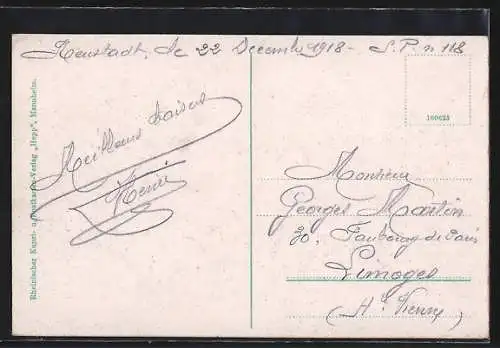 Neustadt, le 22 Decembre 1918 - S.P. n 118
Meilleurs baisers
Henri
160623
Monsieur
Georges Martin
30, Faubourg de Paris
Limoges
(Hte Vienne)
Rheinischer Kunst- u. Postkarten-Verlag „Hepp", Mannheim.